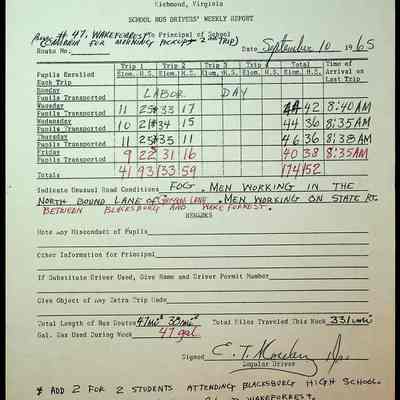 Richmond, Virginia
SCHOOL BUS DRIVERS' WEEKLY REPORT
# 47, WAKEFORREST To Principal of School
(BALDWIN FOR MORNING PICKUP 2nd TRIP)
Route No. Date September 10 1965
Pupils Enrolled Each Trip Trip 1 Trip 2 Trip 3 Trip 4 Trip 5 Total Time of Arrival on Last Trip
Elem. H.S. Elem. H.S. Elem. H.S. Elem. H.S. Elem. H.S. Elem. H.S.
Monday Pupils Transported LABOR DAY
Tuesday Pupils Transported 11 25 33 17 44 42 8:40 AM
Wednesday Pupils Transported 10 21 34 15 44 36 8:35 AM
Thursday Pupils Transported 11 25 35 11 46 36 8:38 AM
Friday Pupils Transported 9 22 31 16 40 38 8:35 AM
Totals 41 93 133 59 174 152
Indicate Unusual Road Conditions FOG. MEN WORKING IN THE
NORTH BOUND LANE OF . MEN WORKING ON STATE RT.
BETWEEN BLACKSBURG AND WAKEFORREST.
REMARKS
Note any Misconduct of Pupils
Other Information for Principal
If Substitute Driver Used, Give Name and Driver Permit Number
Give Object of Any Extra Trip Made
Total Length of Bus Route 47mi Total Miles Traveled This Week 331mi
Gal. Gas Used During Week 47 gal
Signed E. T.
Regular Driver
* ADD 2 FOR 2 STUDENTS ATTENDING BLACKSBURG HIGH SCHOOL.
WAKEFORREST.